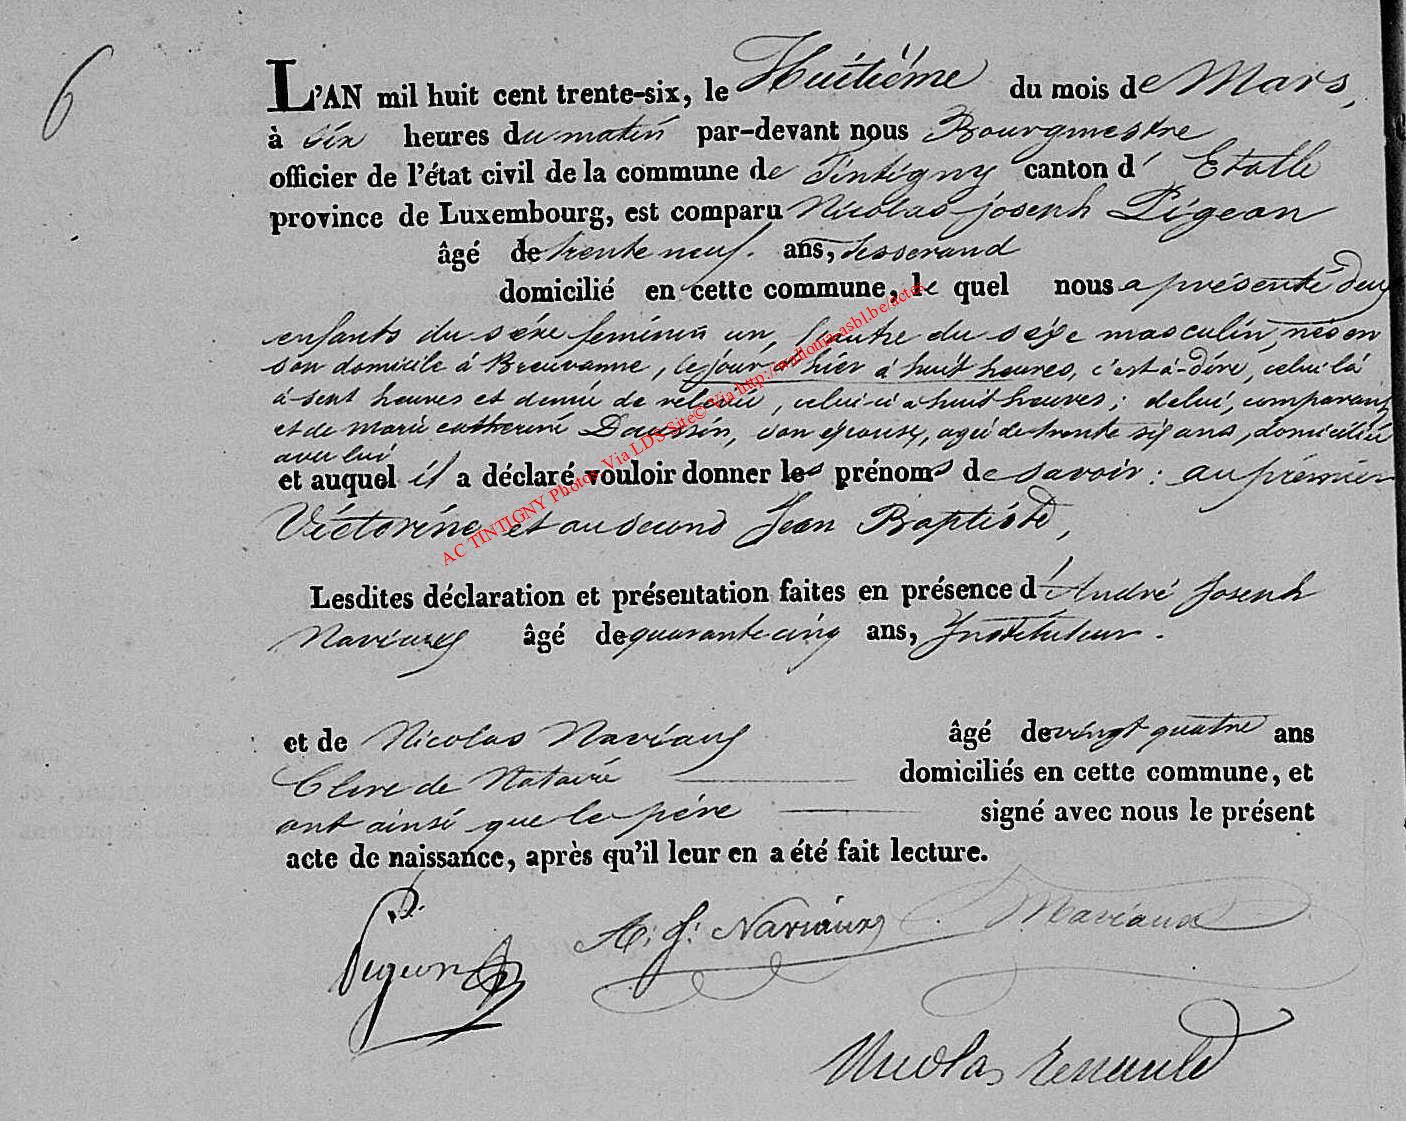 6
L'AN mil huit cent trente-six, le Huitième du mois de Mars,
à six heures du matin par-devant nous Bourgmestre
officier de l'état civil de la commune de Tintigny canton d' Etalle
province de Luxembourg, est comparu Nicolas joseph Pigeon
âgé de trente neuf. ans, tisserand
domicilié en cette commune, le quel nous a présenté deux
enfants du séxe feminin un, l'autre du séxe masculin, nés en
son domicile à Breuvanne, le jour d'hier à huit heures, c'est-à-dire, celui là
à sept heures et demie de relevée, celui-ci à huit heures; de lui, comparant
et de marie catherine Daussin, son épouse, agée de trente six ans, domiciliée
avec lui
et auquel il a déclaré vouloir donner les prénoms de savoir: au prémier
Victorine et au second Jean Baptiste,
Lesdites déclaration et présentation faites en présence d'André Joseph
Naviaux âgé de quarante-cinq ans, Instituteur.
et de Nicolas Naviaux âgé de vingt quatre ans
Clerc de Notaire domiciliés en cette commune, et
ont ainsi que le père signé avec nous le présent
acte de naissance, après qu'il leur en a été fait lecture.
Pigeon A. J. Naviaux Naviaux
Nicolas Renauld
AC TINTIGNY Photos Via LDS Site© Via http://wallonia-asbl.be/actes